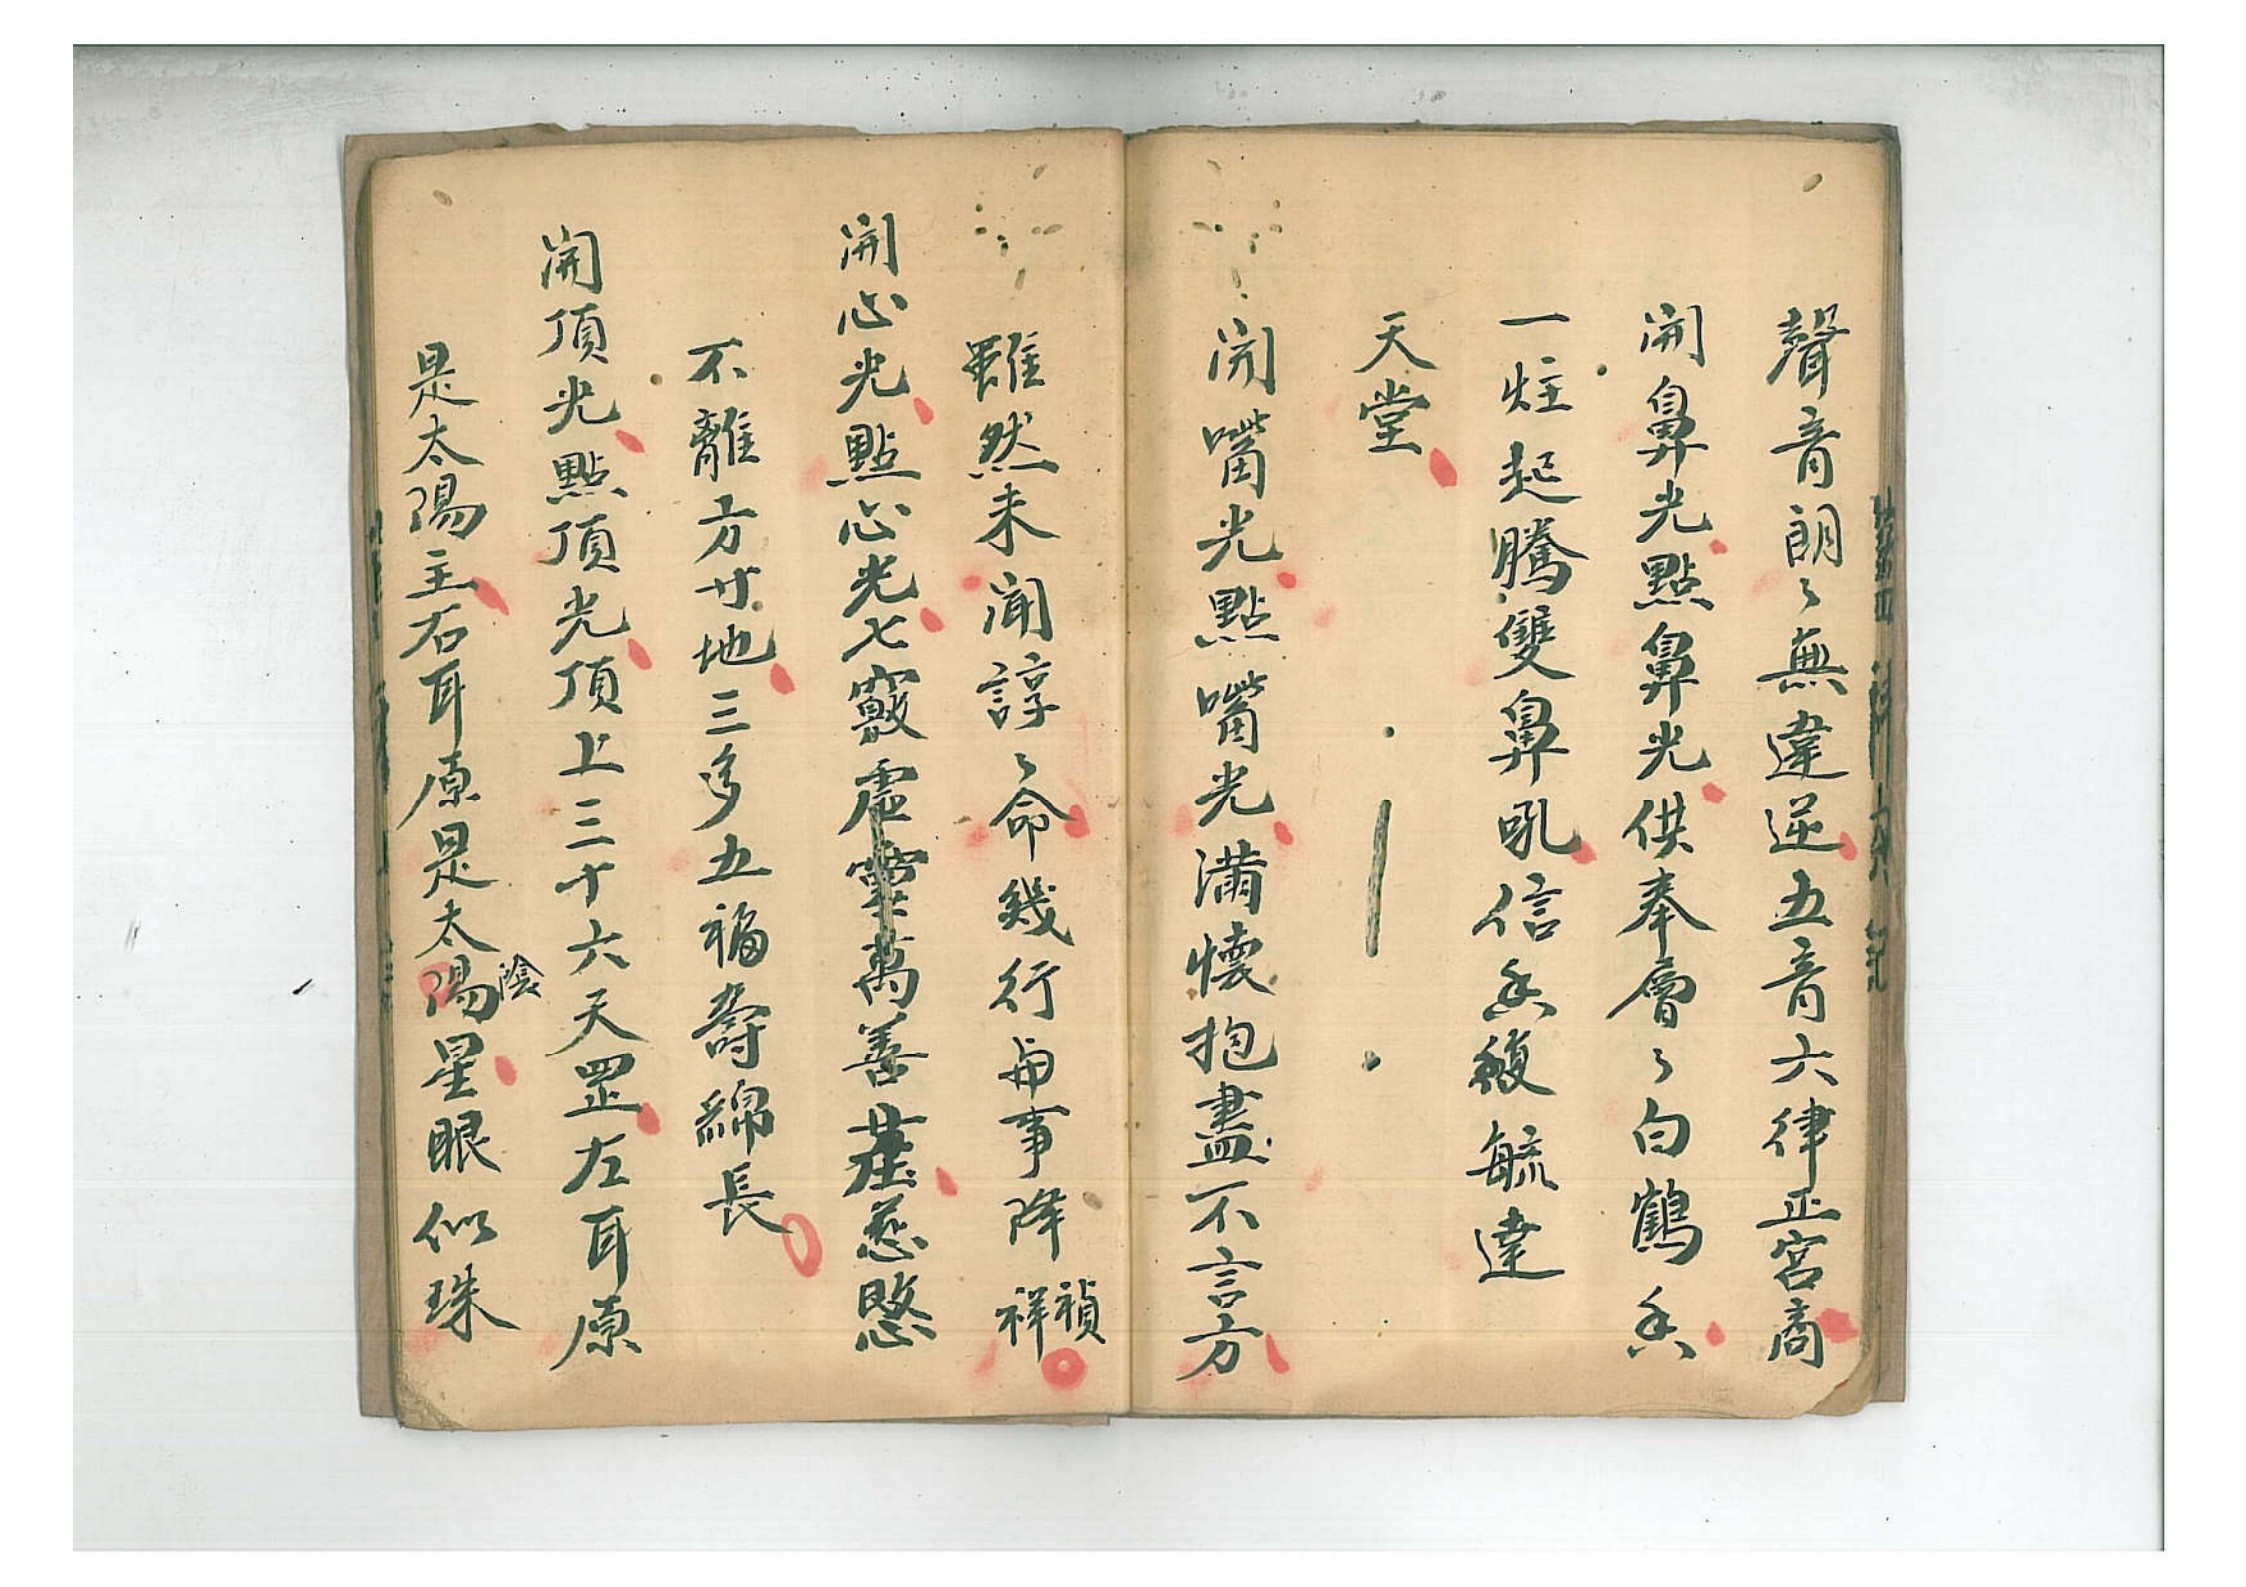 聲音朗々無違逆五音六律正宮商
開鼻光點鼻光供奉層々白鶴香
一炷起騰雙鼻吼信香馥毓達
天堂
開嘴光點嘴光滿懷抱盡不言方
雖然未開諄々命幾行每事降禎祥
開心光點心光七竅虛靈萬善基慈愍
不離方寸地三多五福壽綿長
開頂光點頂光頂上三十六天罡左耳原
是太陽主右耳原是太陽陰星眼似珠